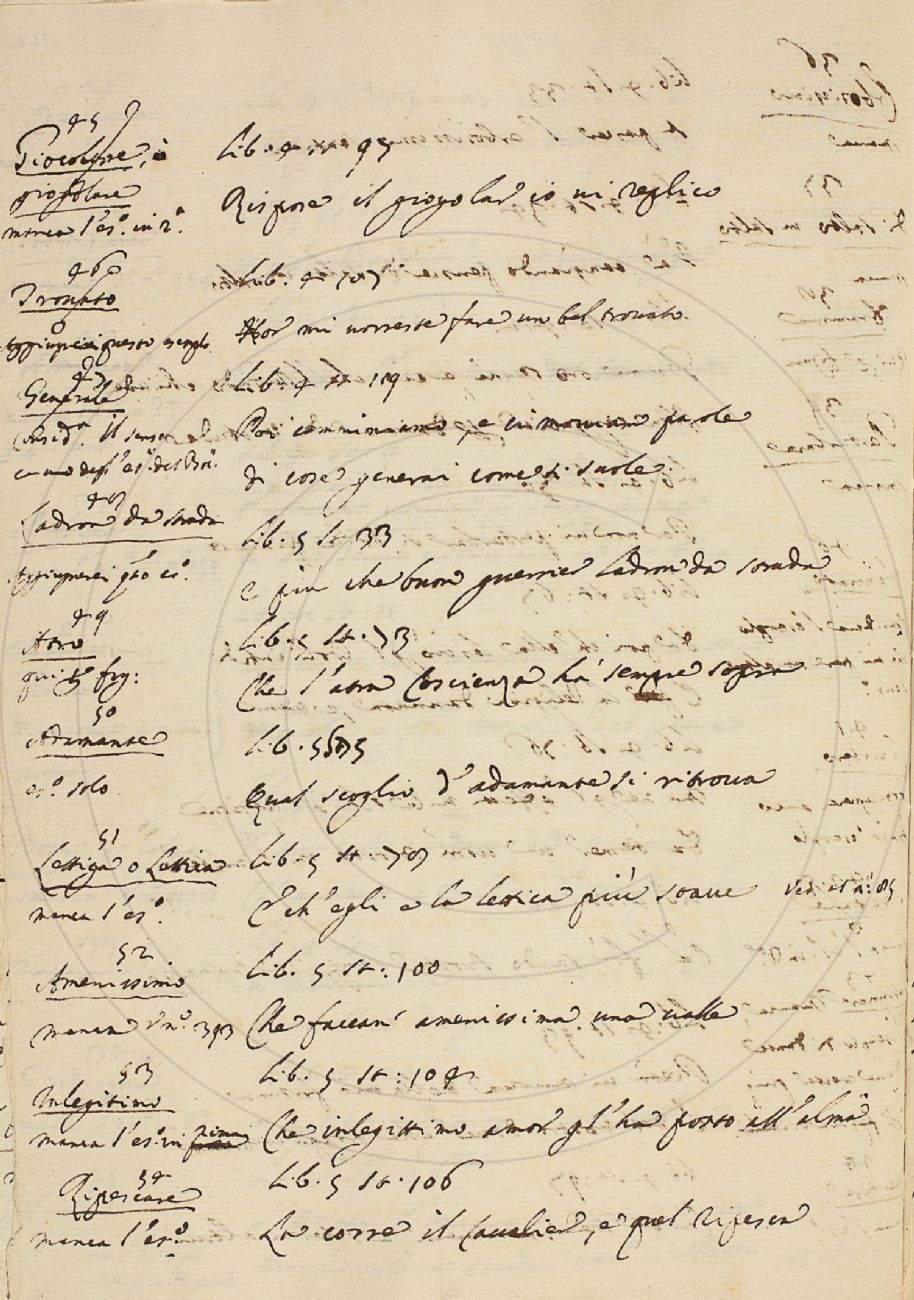 45
Giocolare, o
giogolare
manca l'es.º in 2.º
Lib. 4 st 95
Rispose il giogolar io ui replico
46
Trouato
Aggiungerei questo esempl.
Lib. 4
Hor mi uorreste fare un bel trouato
47
Generale
il senso
Lib. 4 st 119
Poi camminiamo, e ci mouiam parole
di cose generai come si suole
48
Ladron da strada
Aggiungerei qto es.º
Lib. 5 st 33
e più che buon guerrier ladron da strada
49
Atro
qui fig:
Lib. 5 st. 73
Che l'atra Coscienza ha sempre sopra
50
Adamante
es.º solo
Lib. 5
Qual scoglio d'adamante si ritroua
51
Lettiga o Lettica
manca l'es.º
Lib. 5 st.
E ch'egli e la lettica più soaue
Ved. al nº. 85
52
Amenissimo
manca
Lib. 5 st: 100
Che faccan' amenissima una ualle
53
Inlegitimo
manca l'es.º in prima
Lib. 5 st: 104
Che inlegittimo amor gl'ha posto all'alma
54
Ripescare
manca l'es.º
Lib. 5 st. 106
La corre il Caualier, e quel ripesca